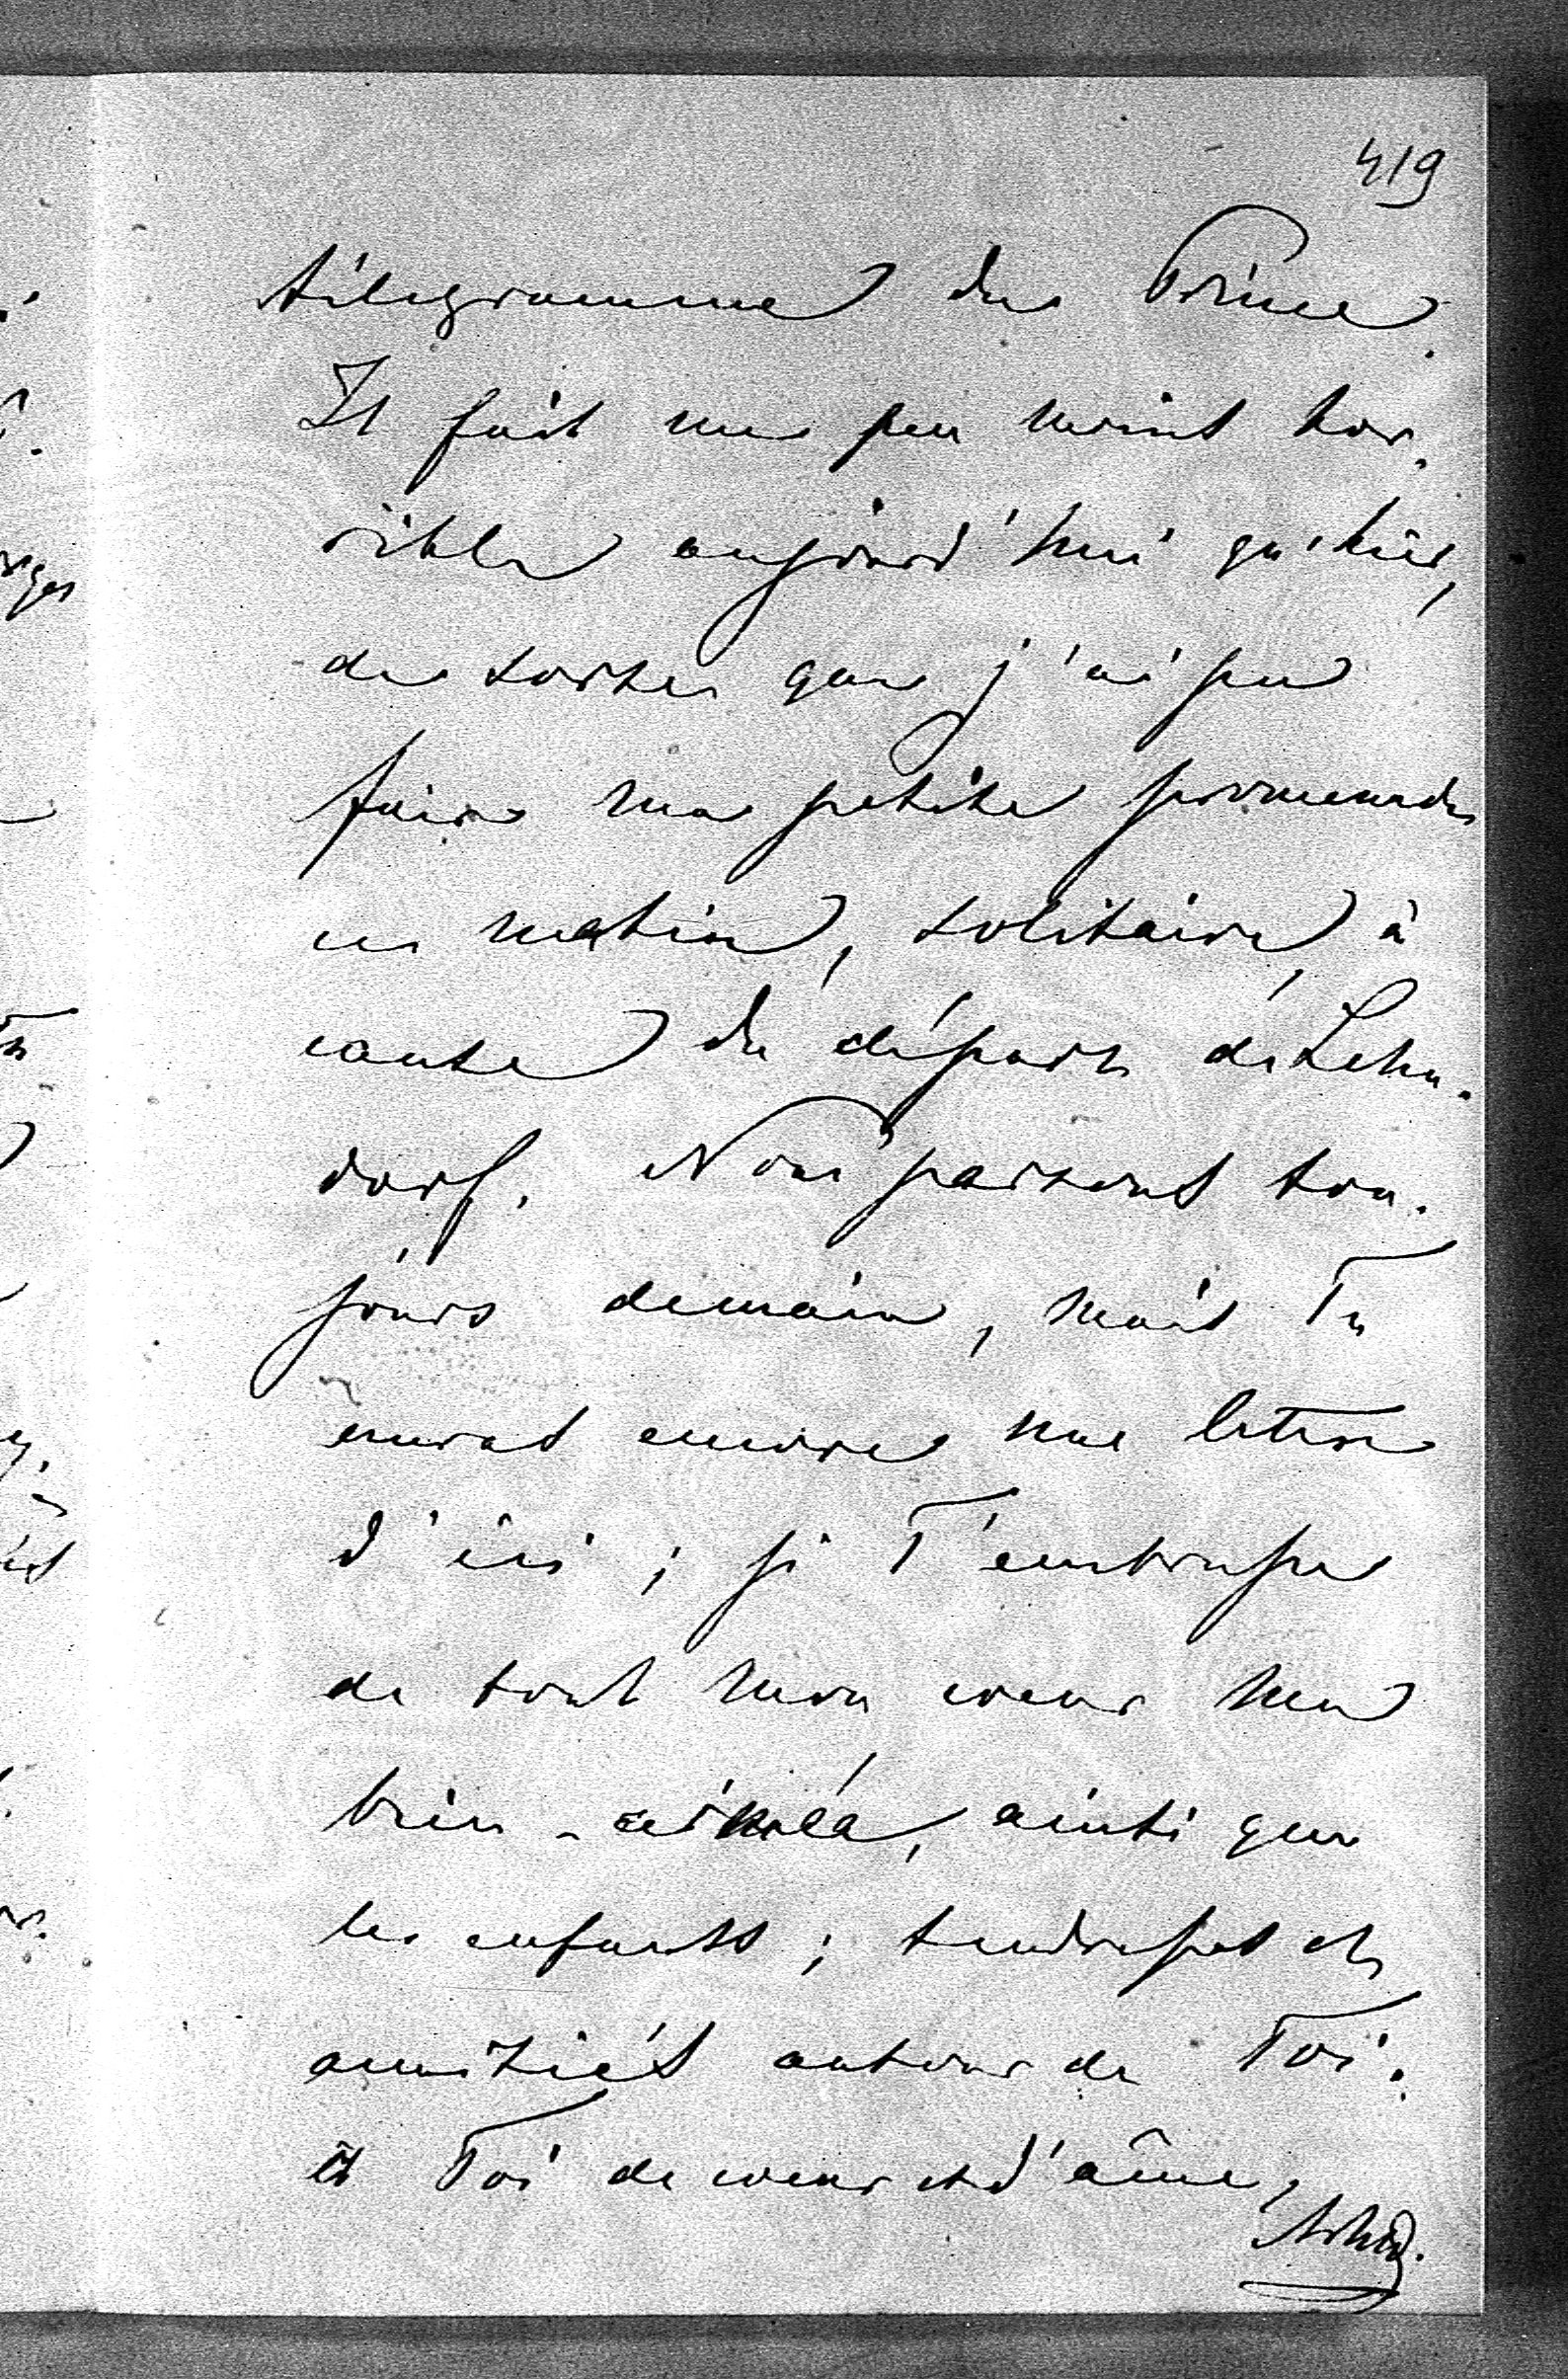 419
télégramme du Prince.
Il fait un peu moins hor-
rible aujourd'hui qu'hier,
de sorte que j'ai pu
faire ma petite promenade
ce matin, solitaire, à
cause du départ de Lehn-
dorf. Nous partons tou-
jours demain, mais Tu
auras encore une lettre
d'ici; je T'embrasse
de tout mon coeur ma
bien-aimée, ainsi que
les enfants; tendresses et
amitiés autour de Toi.
à Toi de coeur et d'âme,